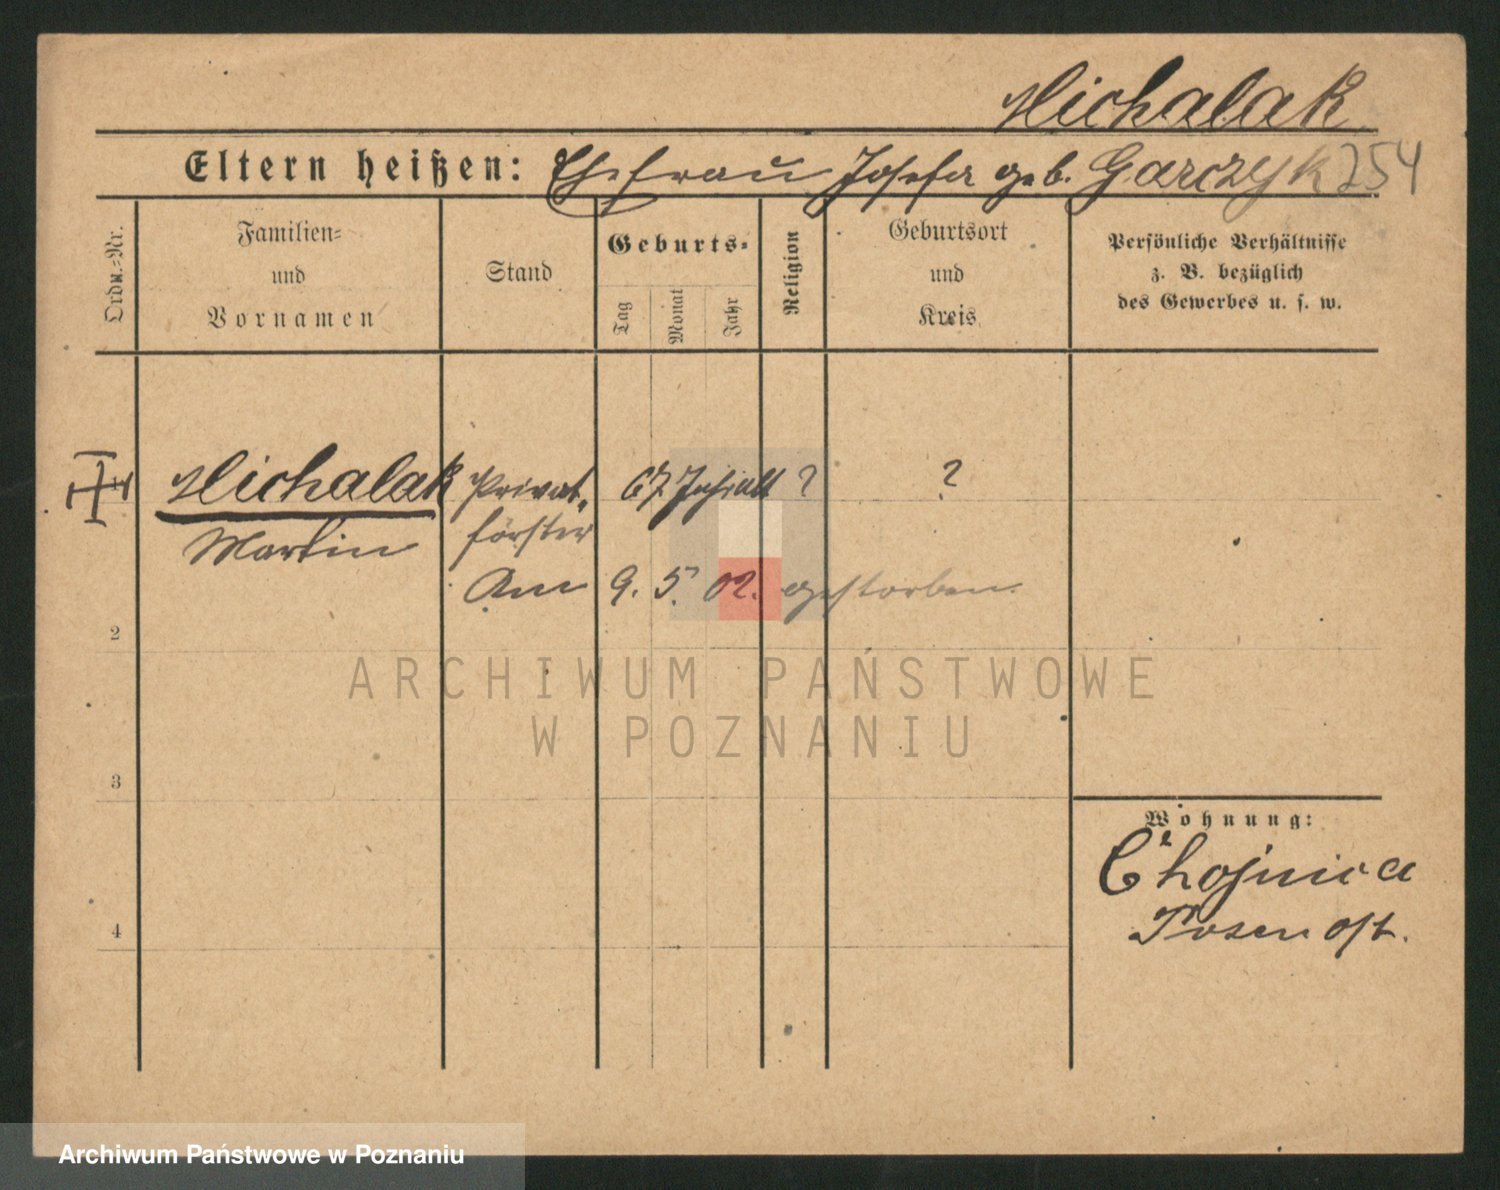 Michalak
Eltern heißen: Ehefrau Josefa geb. Garczyk 254
Ordn.-Nr.
Familien-
und
Vornamen
Stand
Geburts-
Tag
Monat
Jahr
Religion
Geburtsort
und
Kreis
Persönliche Verhältnisse
z. B. bezüglich
des Gewerbes u. s. w.
1 Michalak Privat- 67 Jahr alt ? ?
Martin förster
Am 9. 5. 02. gestorben.
2
3
4
Wohnung:
Chojnica
Posen Ost.
ARCHIWUM PAŃSTWOWE
W POZNANIU
Archiwum Państwowe w Poznaniu